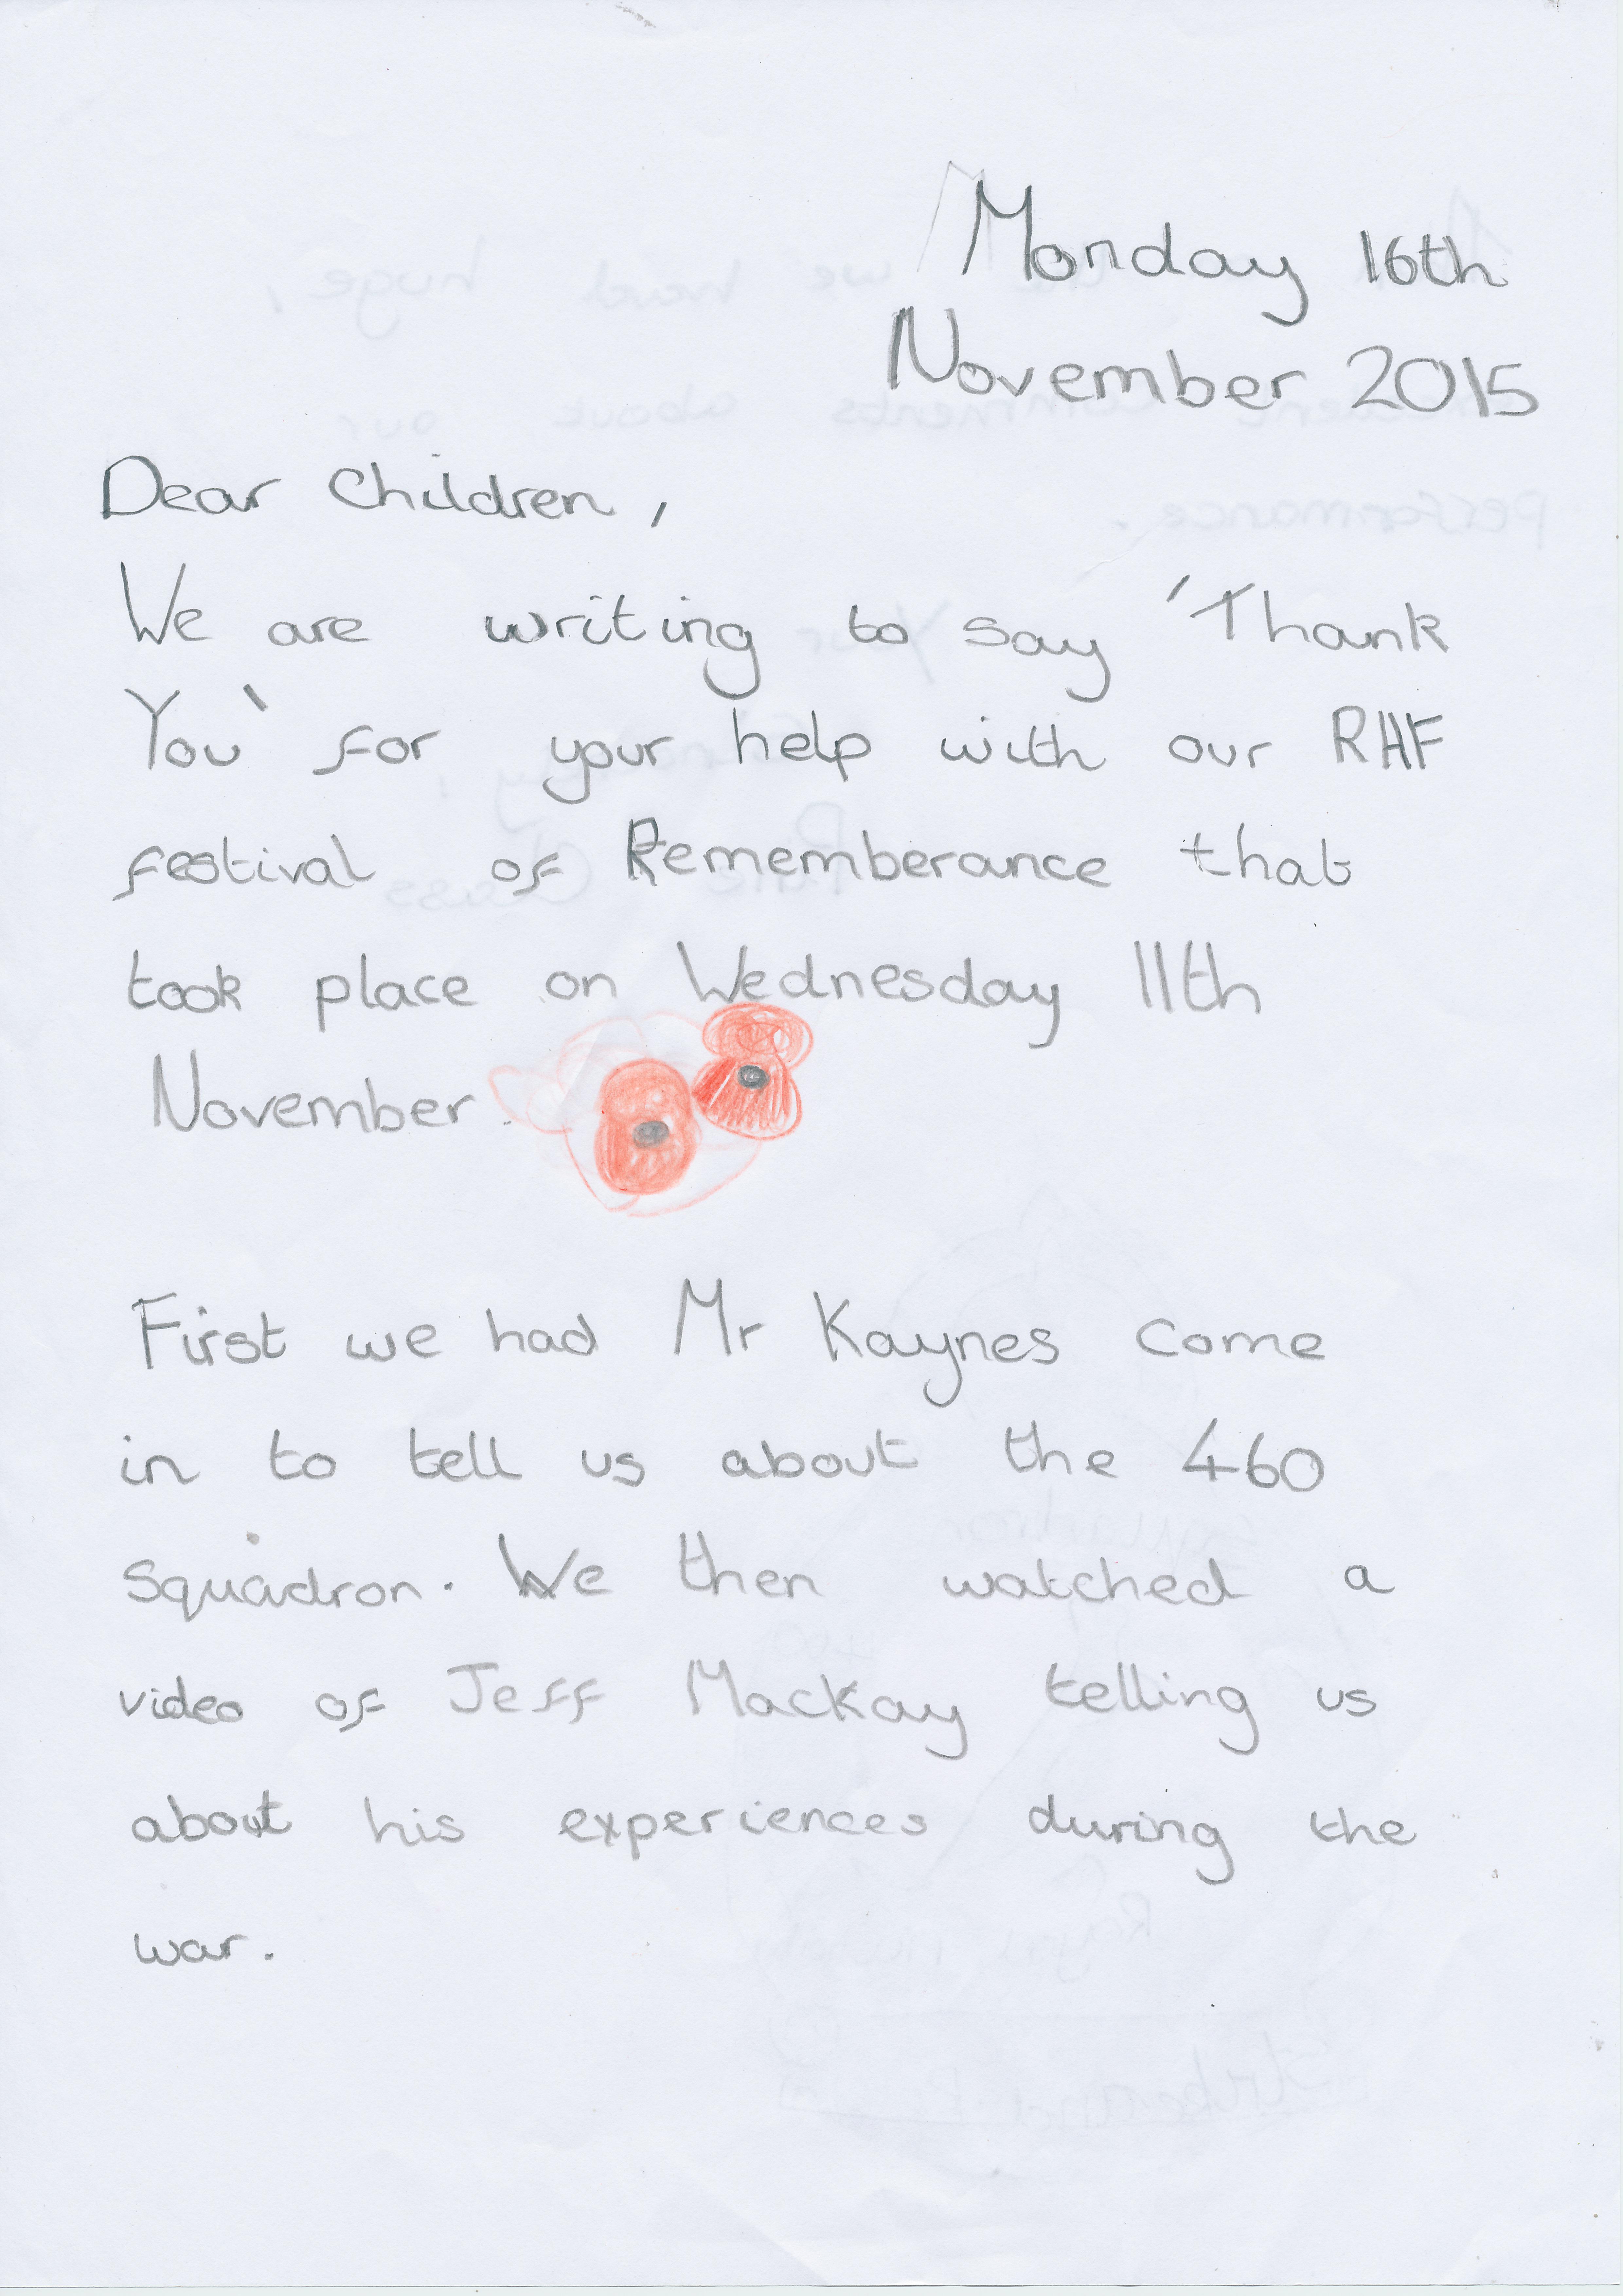 Monday 16th
November 2015
Dear Children,
We are writing to say 'Thank
You' for your help with our RAF
festival of Rememberance that
took place on Wednesday 11th
November.
First we had Mr Kaynes come
in to tell us about the 460
Squadron. We then watched a
video of Jeff Mackay telling us
about his experiences during the
war.